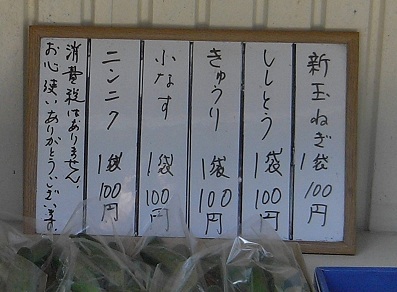 新玉ねぎ 1袋 100円
ししとう 1袋 100円
きゅうり 1袋 100円
小なす 1袋 100円
ニンニク 1袋 100円
消費税はありません。
お心使いありがとうございます。